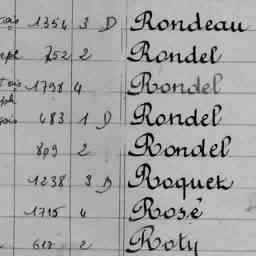 1354 3 D Rondeau
752 2 Rondel
1798 4 Rondel
483 1 D Rondel
809 2 Rondel
1238 3 D Roquet
1715 4 Rosé
617 2 Roty